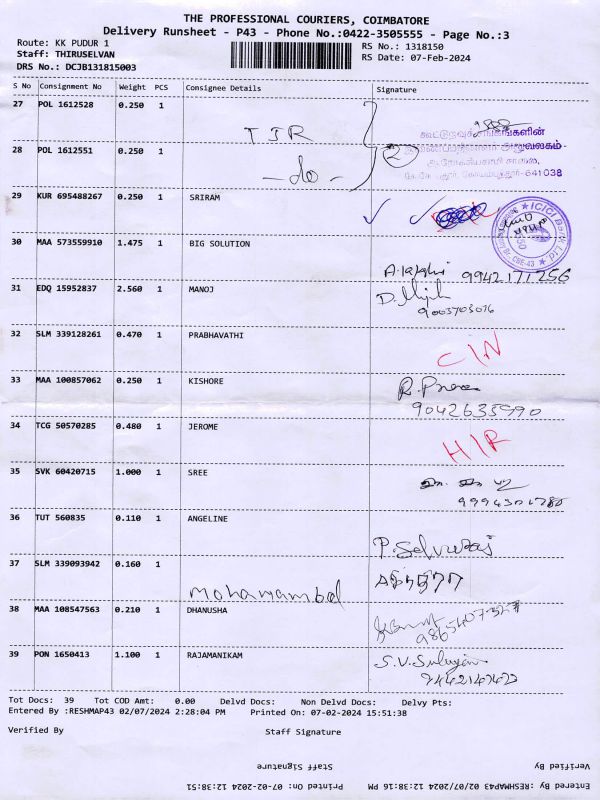 THE PROFESSIONAL COURIERS, COIMBATORE
Delivery Runsheet - P43 - Phone No.:0422-3505555 - Page No.:3
Route: KK PUDUR 1
RS No.: 1318150
Staff: THIRUSELVAN
RS Date: 07-Feb-2024
DRS No.: DCJB131815003
S No Consignment No Weight PCS Consignee Details Signature
27 POL 1612528 0.250 1
28 POL 1612551 0.250 1 -do- 2
29 KUR 695488267 0.250 1 SRIRAM
ICICI Bank
30 MAA 573559910 1.475 1 BIG SOLUTION
9942171256
31 EDQ 15952837 2.560 1 MANOJ
32 SLM 339128261 0.470 1 PRABHAVATHI
33 MAA 100857062 0.250 1 KISHORE
9042635990
34 TCG 50570285 0.480 1 JEROME
35 SVK 60420715 1.000 1 SREE
36 TUT 560835 0.110 1 ANGELINE
P. Selvaraj
37 SLM 339093942 0.160 1
38 MAA 108547563 0.210 1 DHANUSHA
39 PON 1650413 1.100 1 RAJAMANIKAM
Tot Docs: 39 Tot COD Amt: 0.00 Delvd Docs: Non Delvd Docs: Delvy Pts:
Entered By :RESHMAP43 02/07/2024 2:28:04 PM Printed On: 07-02-2024 15:51:38
Verified By Staff Signature
Verified By Staff Signature
Entered By :RESHMAP43 02/07/2024 12:38:16 PM Printed On: 07-02-2024 12:38:51